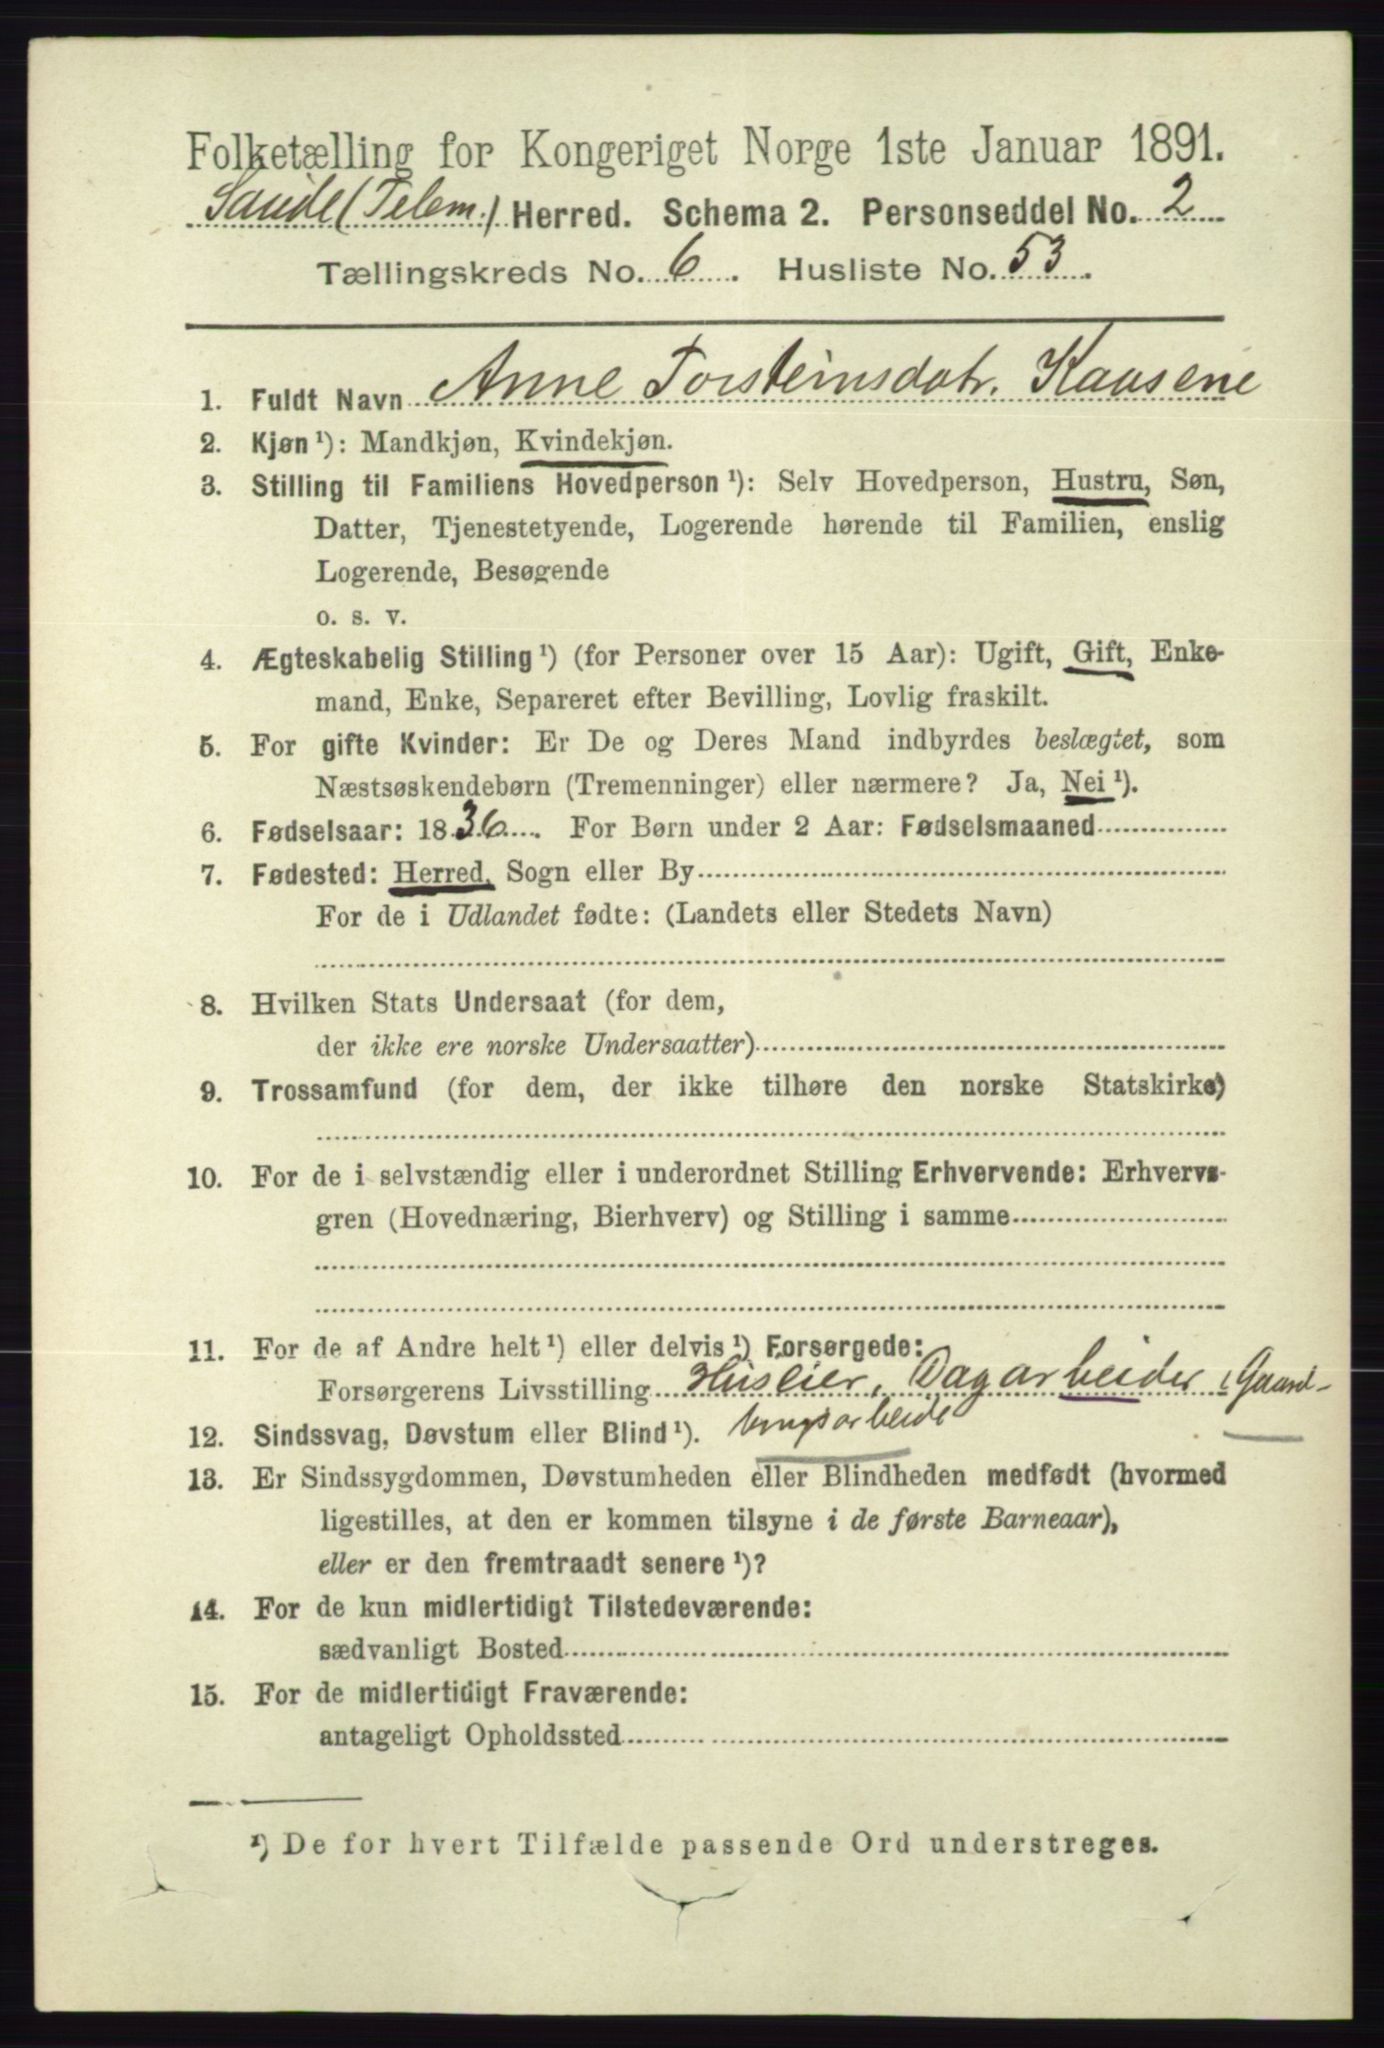 Folketælling for Kongeriget Norge 1ste Januar 1891.
Saude (Telem.) Herred. Schema 2. Personseddel No. 2
Tællingskreds No. 6. Husliste No. 53.
1. Fuldt Navn Anne Torsteinsdatr. Kaasene
2. Kjøn ¹): Mandkjøn, Kvindekjøn.
3. Stilling til Familiens Hovedperson ¹): Selv Hovedperson, Hustru, Søn,
Datter, Tjenestetyende, Logerende hørende til Familien, enslig
Logerende, Besøgende
o. s. v.
4. Ægteskabelig Stilling ¹) (for Personer over 15 Aar): Ugift, Gift, Enke-
mand, Enke, Separeret efter Bevilling, Lovlig fraskilt.
5. For gifte Kvinder: Er De og Deres Mand indbyrdes beslægtet, som
Næstsøskendebørn (Tremenninger) eller nærmere? Ja, Nei ¹).
6. Fødselsaar: 1836. For Børn under 2 Aar: Fødselsmaaned
7. Fødested: Herred, Sogn eller By
For de i Udlandet fødte: (Landets eller Stedets Navn)
8. Hvilken Stats Undersaat (for dem,
der ikke ere norske Undersaatter)
9. Trossamfund (for dem, der ikke tilhøre den norske Statskirke)
10. For de i selvstændig eller i underordnet Stilling Erhvervende: Erhvervs-
gren (Hovednæring, Bierhverv) og Stilling i samme
11. For de af Andre helt ¹) eller delvis ¹) Forsørgede:
Forsørgerens Livsstilling Huslier, Dagarbeider i Gaard-
brugsarbeide
12. Sindssvag, Døvstum eller Blind ¹).
13. Er Sindssygdommen, Døvstumheden eller Blindheden medfødt (hvormed
ligestilles, at den er kommen tilsyne i de første Barneaar),
eller er den fremtraadt senere ¹)?
14. For de kun midlertidigt Tilstedeværende:
sædvanligt Bosted
15. For de midlertidigt Fraværende:
antageligt Opholdssted
¹) De for hvert Tilfælde passende Ord understreges.